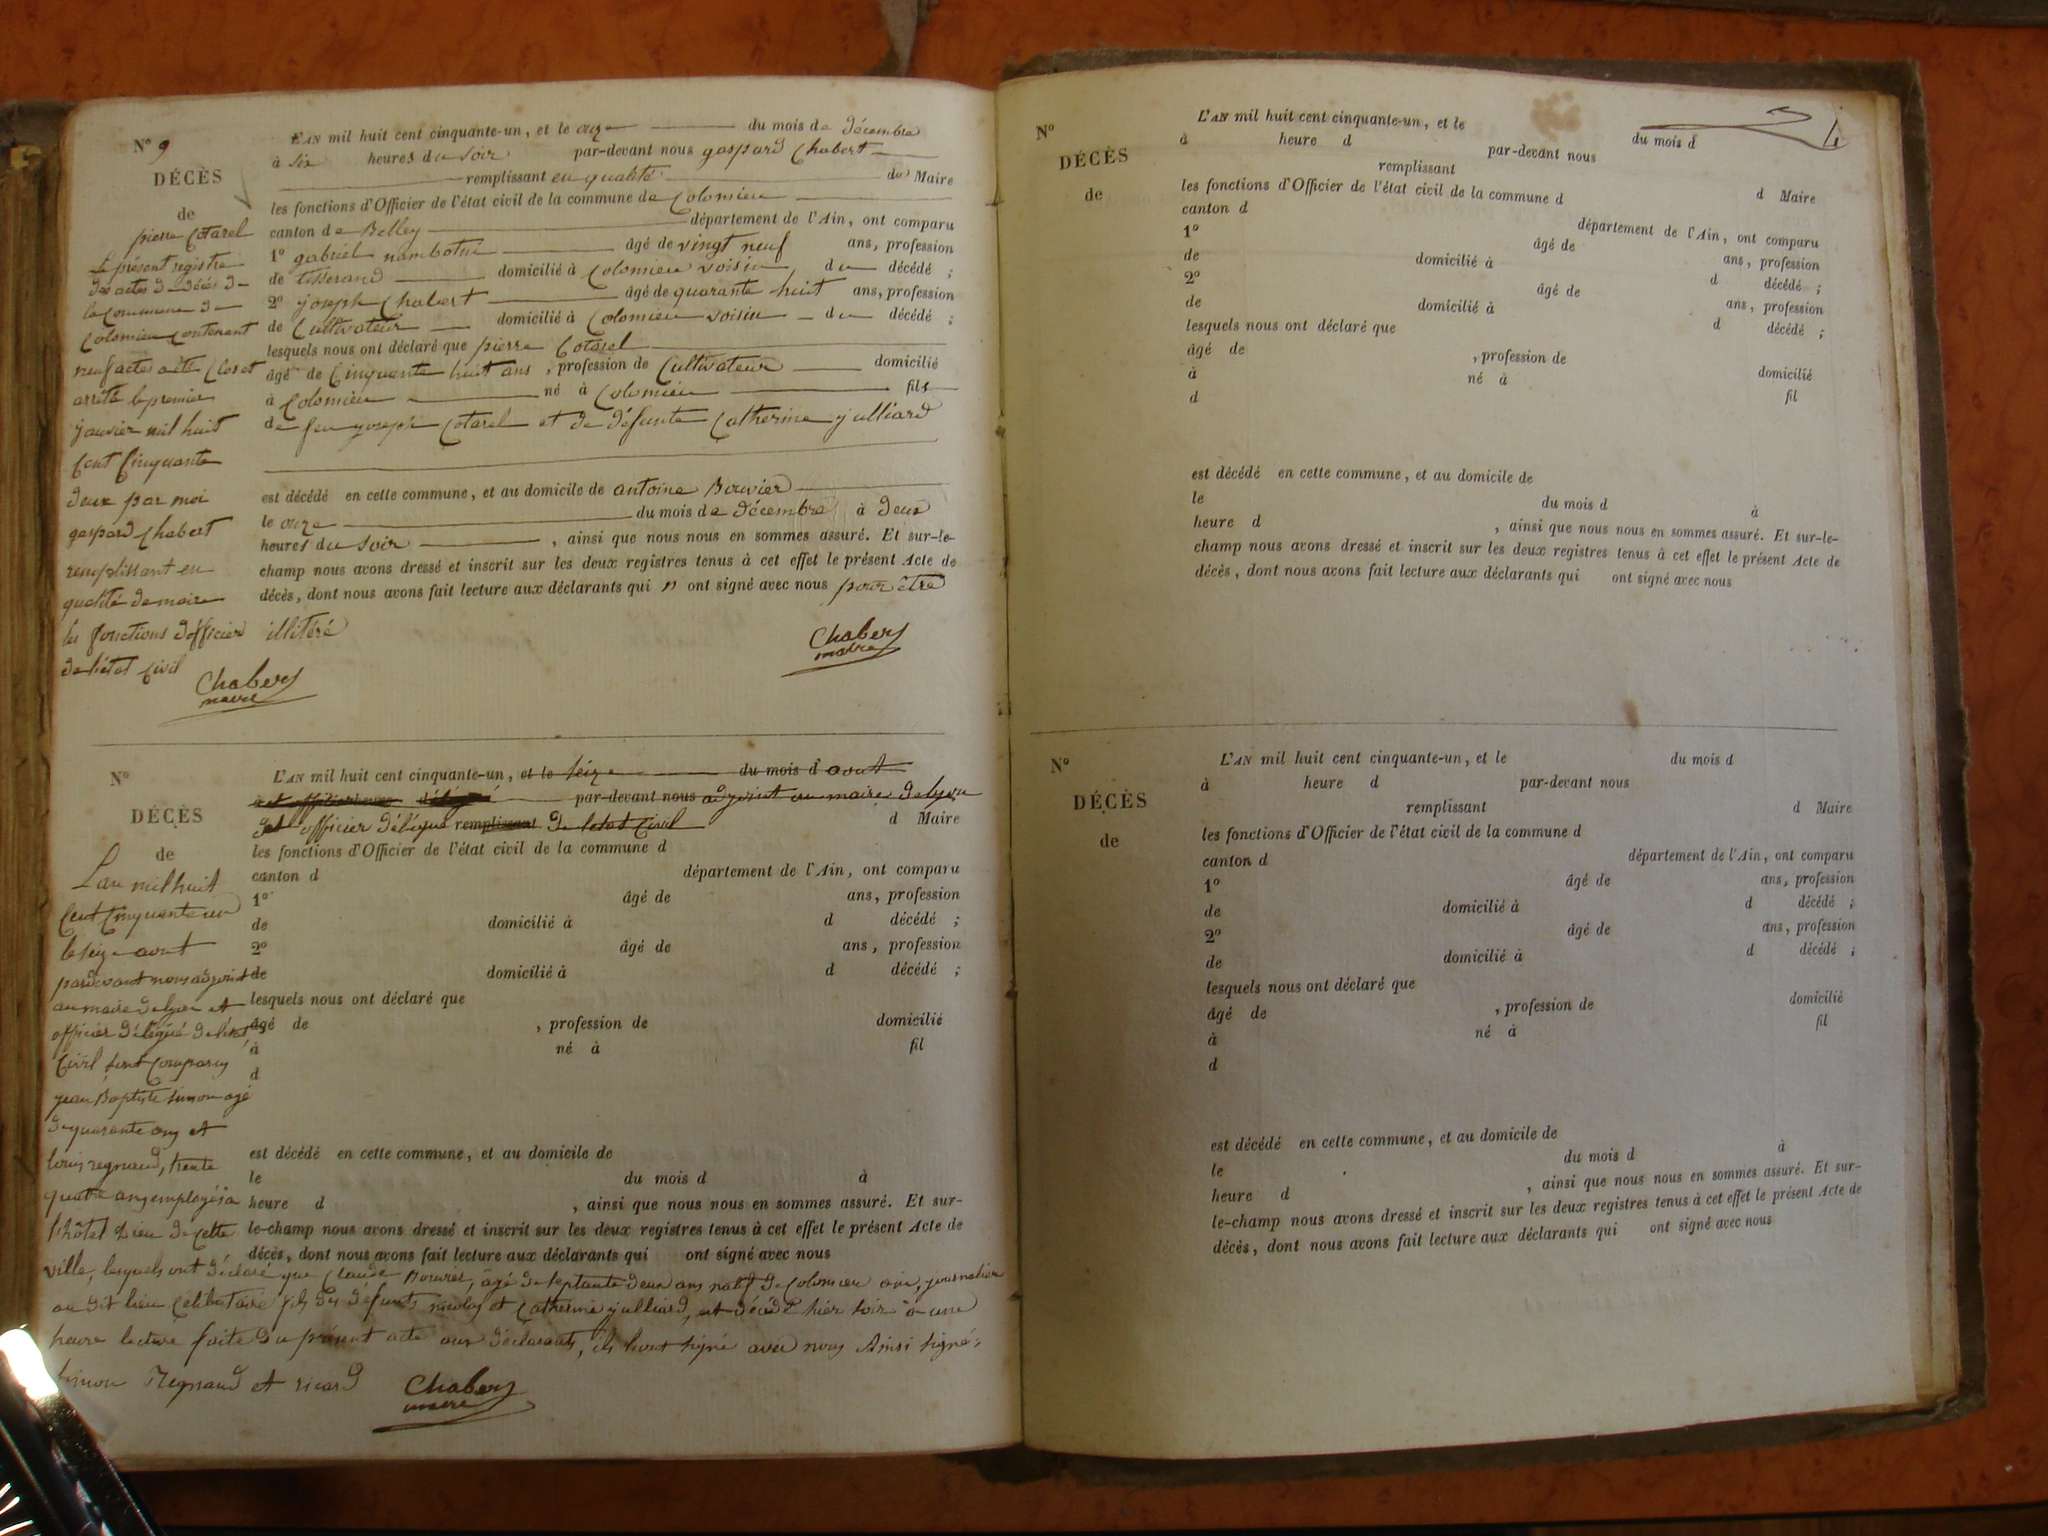 N° 9
DÉCÈS
de
pierre Cotarel
Le présent registre
des actes de décès de
la Commune de
Colomieu Contenant
neuf actes a été Clos et
arrêté le premier
janvier mil huit
Cent Cinquante
deux par moi
gaspard Chabert
remplissant en
qualité de maire
les fonctions d'officier
de l'état Civil
Chabert
maire
L'AN mil huit cent cinquante-un, et le onze du mois de décembre
à six heures du soir par-devant nous gaspard Chabert
remplissant en qualité du Maire
les fonctions d'Officier de l'état civil de la commune de Colomieu
canton de Belley département de l'Ain, ont comparu
1° gabriel âgé de vingt neuf ans, profession
de tisserand domicilié à Colomieu voisin du décédé ;
2° joseph Chabert âgé de quarante huit ans, profession
de Cultivateur domicilié à Colomieu voisin du décédé ;
lesquels nous ont déclaré que pierre Cotarel
âgé de Cinquante huit ans, profession de Cultivateur domicilié
à Colomieu né à Colomieu fils
de feu joseph Cotarel et de défunte Catherine julliard
est décédé en cette commune, et au domicile de antoine Bouvier
le onze du mois de décembre à deux
heures du soir, ainsi que nous nous en sommes assuré. Et sur-le-
champ nous avons dressé et inscrit sur les deux registres tenus à cet effet le présent Acte de
décès, dont nous avons fait lecture aux déclarants qui n ont signé avec nous pour être
illitéré
Chabert
maire
N°
DÉCÈS
de
L'an mil huit
Cent Cinquante un
le seize aout
pardevant nous adjoint
au maire de lyon et
officier délégué de l'état
Civil sont Comparus
jean Baptiste simon agé
de quarante ans et
louis regnaud, trente
quatre ans employés à
l'hôtel Dieu de Cette
L'AN mil huit cent cinquante-un, et le seize du mois d aout
par-devant nous adjoint au maire de lyon
et officier délégué remplissant de letat Civil d Maire
les fonctions d'Officier de l'état civil de la commune d
canton d département de l'Ain, ont comparu
1° âgé de ans, profession
de domicilié à d décédé ;
2° âgé de ans, profession
de domicilié à d décédé ;
lesquels nous ont déclaré que
âgé de , profession de domicilié
à né à fil
d
est décédé en cette commune, et au domicile de
le du mois d à
heure d , ainsi que nous nous en sommes assuré. Et sur-
le-champ nous avons dressé et inscrit sur les deux registres tenus à cet effet le présent Acte de
décès, dont nous avons fait lecture aux déclarants qui ont signé avec nous
ville, lesquels ont déclaré que Claude Bouvier, âgé de septante deux ans natif de Colomieu ain, journalier
au dit lieu Célibataire fils des défunts nicolas et Catherine julliard, est décédé hier soir à une
heure lecture faite du présent acte aux déclarants, ils l'ont signé avec nous Ainsi signé:
simon Regnaud et ricard
Chabert
maire
N°
DÉCÈS
de
L'AN mil huit cent cinquante-un, et le du mois d
à heure d par-devant nous
remplissant d Maire
les fonctions d'Officier de l'état civil de la commune d
canton d département de l'Ain, ont comparu
1° âgé de ans, profession
de domicilié à d décédé ;
2° âgé de ans, profession
de domicilié à d décédé ;
lesquels nous ont déclaré que
âgé de , profession de domicilié
à né à fil
d
est décédé en cette commune, et au domicile de
le du mois d à
heure d , ainsi que nous nous en sommes assuré. Et sur-le-
champ nous avons dressé et inscrit sur les deux registres tenus à cet effet le présent Acte de
décès, dont nous avons fait lecture aux déclarants qui ont signé avec nous
N°
DÉCÈS
de
L'AN mil huit cent cinquante-un, et le du mois d
à heure d par-devant nous
remplissant d Maire
les fonctions d'Officier de l'état civil de la commune d
canton d département de l'Ain, ont comparu
1° âgé de ans, profession
de domicilié à d décédé ;
2° âgé de ans, profession
de domicilié à d décédé ;
lesquels nous ont déclaré que
âgé de , profession de domicilié
à né à fil
d
est décédé en cette commune, et au domicile de
le du mois d à
heure d , ainsi que nous nous en sommes assuré. Et sur-
le-champ nous avons dressé et inscrit sur les deux registres tenus à cet effet le présent Acte de
décès, dont nous avons fait lecture aux déclarants qui ont signé avec nous